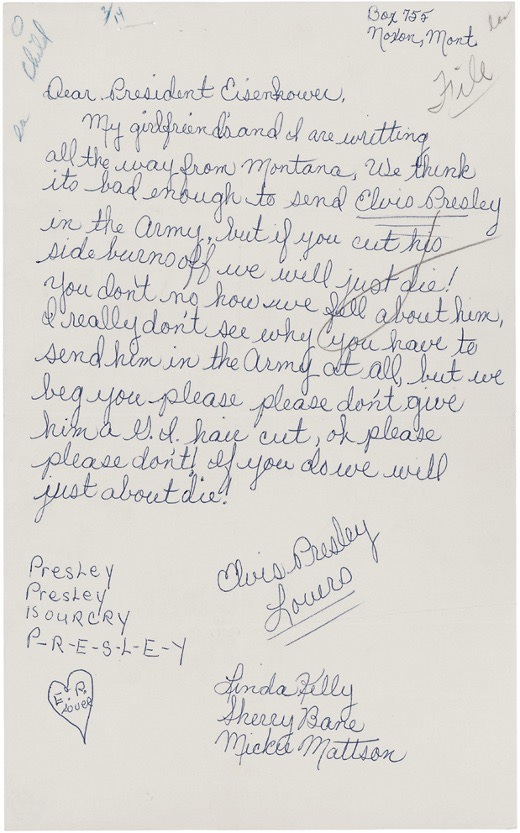 Box 755
Noxon, Mont
3/14
Child
File
Dear President Eisenhower,
My girlfriend's and I are writting
all the way from Montana, We think
its bad enough to send Elvis Presley
in the Army, but if you cut his
side burns off we will just die!
You don't no how we fell about him,
I really don't see why you have to
send him in the Army at all, but we
beg you please please don't give
him a G.I. hair cut, oh please
please don't! If you do we will
just about die!
Elvis Presley
Lovers
Presley
Presley
IS OUR CRY
P-R-E-S-L-E-Y
E.P.
Lover
Linda Kelly
Sherry Bane
Mickie Mattson